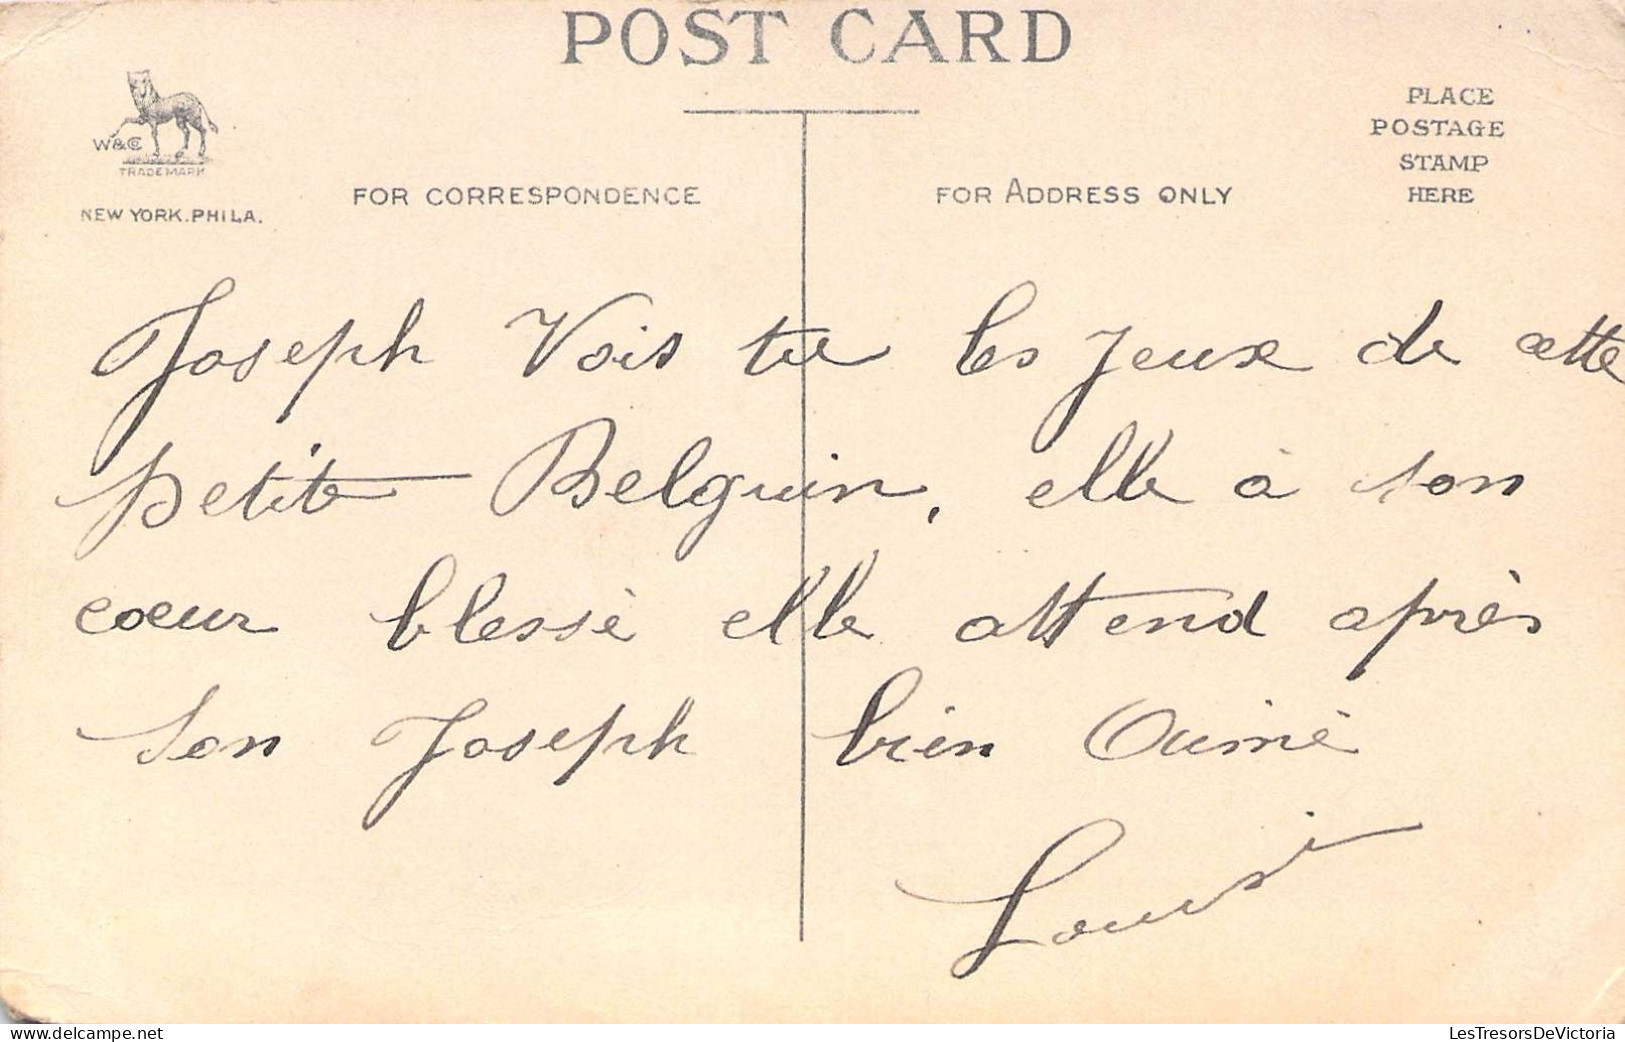 POST CARD
W&Co
TRADE MARK
NEW YORK. PHILA.
FOR CORRESPONDENCE
FOR ADDRESS ONLY
PLACE
POSTAGE
STAMP
HERE
Joseph Vois tu les Jeux de cette
petite Belguin, elle à son
coeur blessé elle attend après
son Joseph bien Aimé
Louise
delcampe.net
LesTresorsDeVictoria